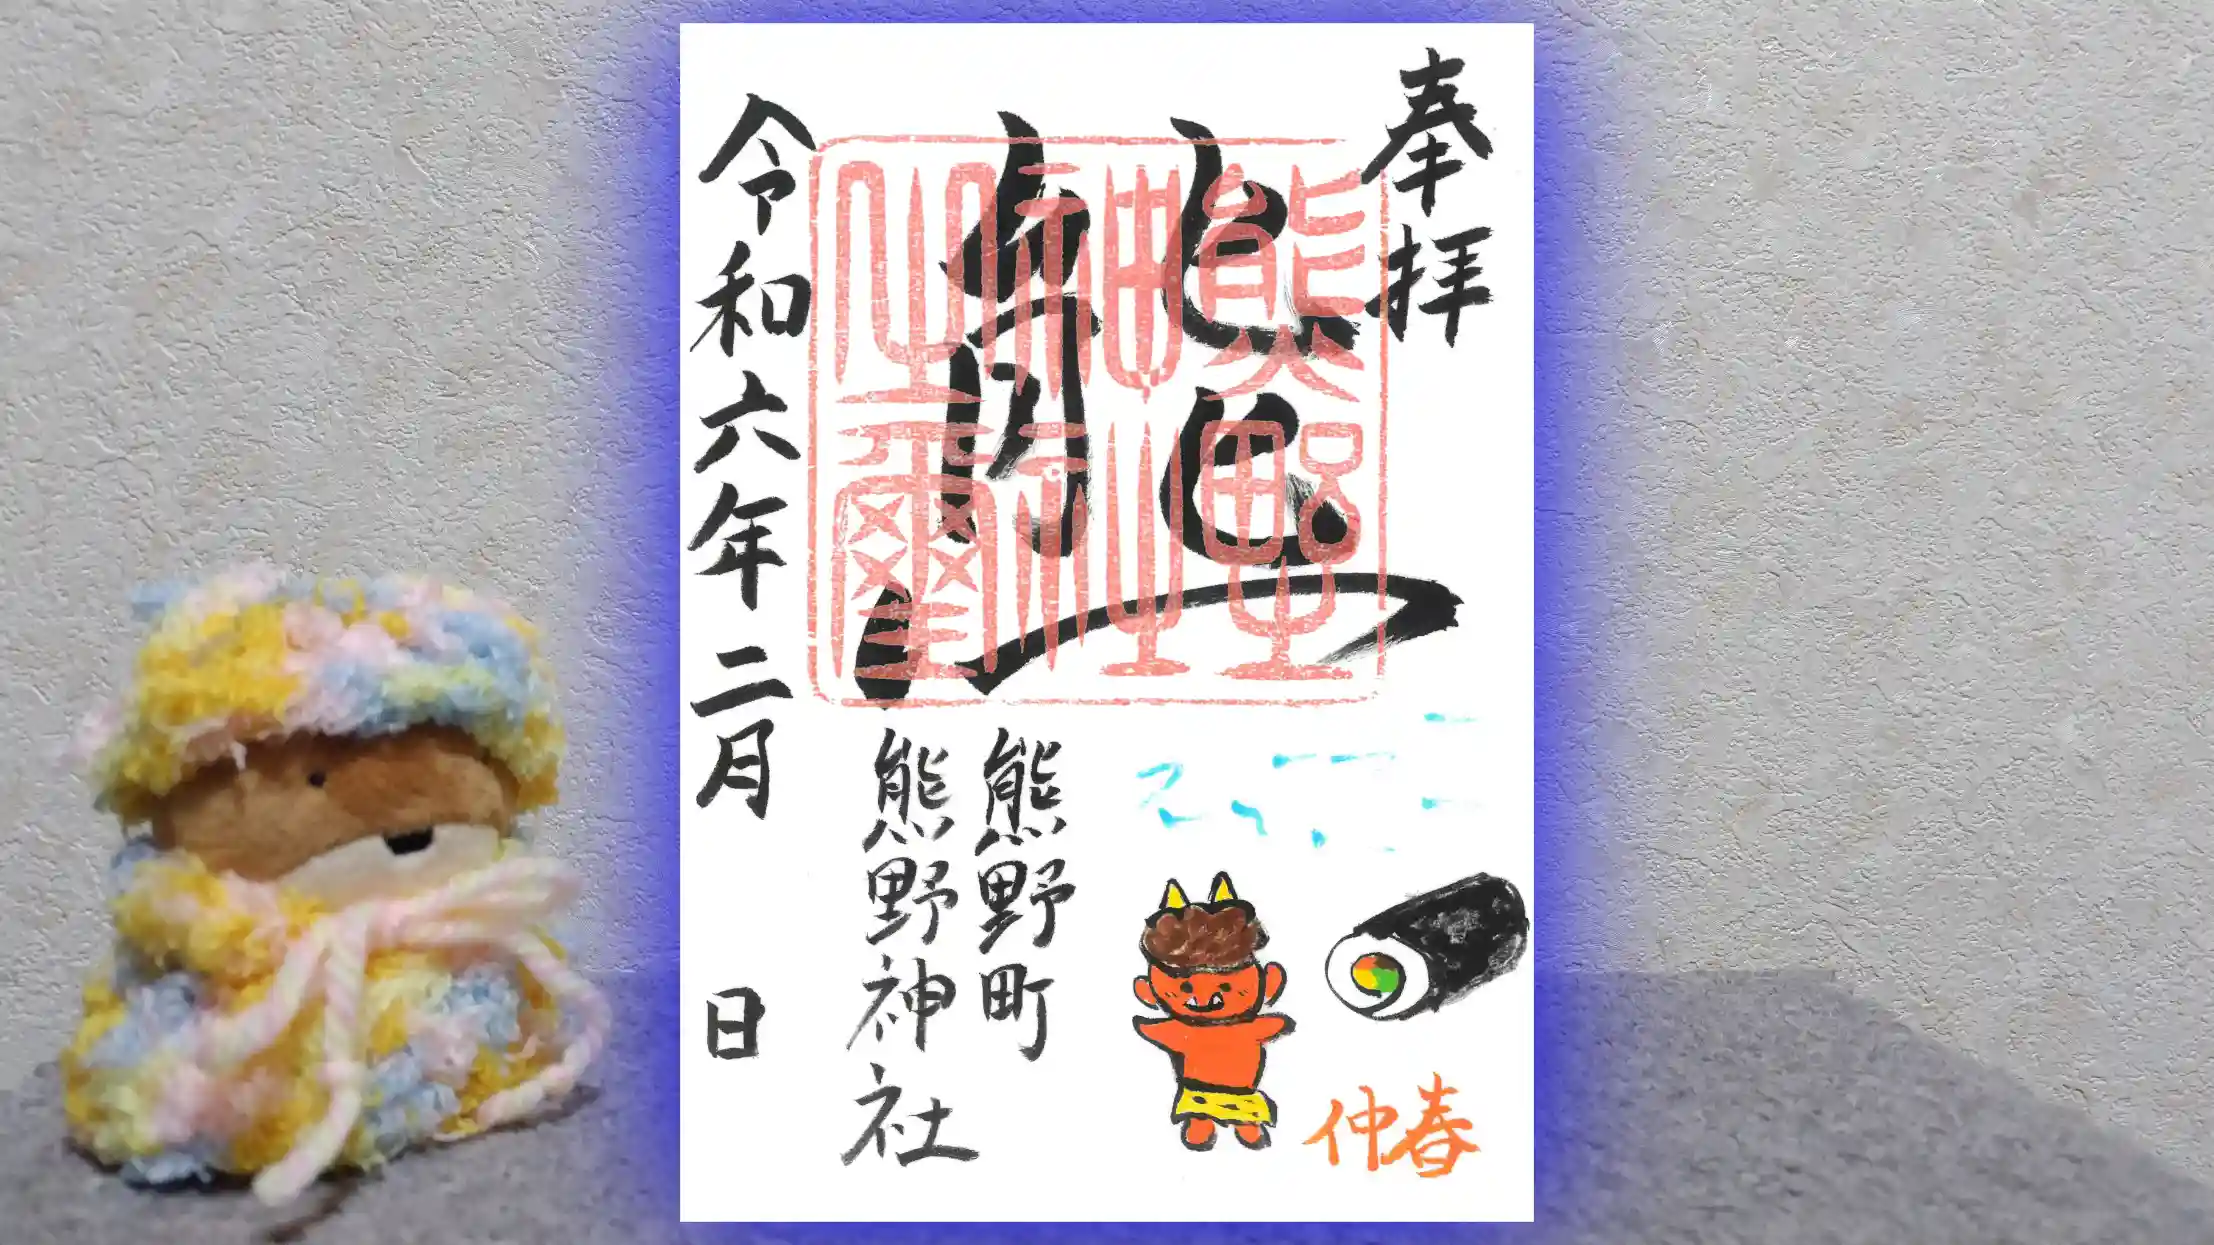 奉拝
熊野
神社
之璽
仲春
熊野町
熊野神社
令和六年二月　日